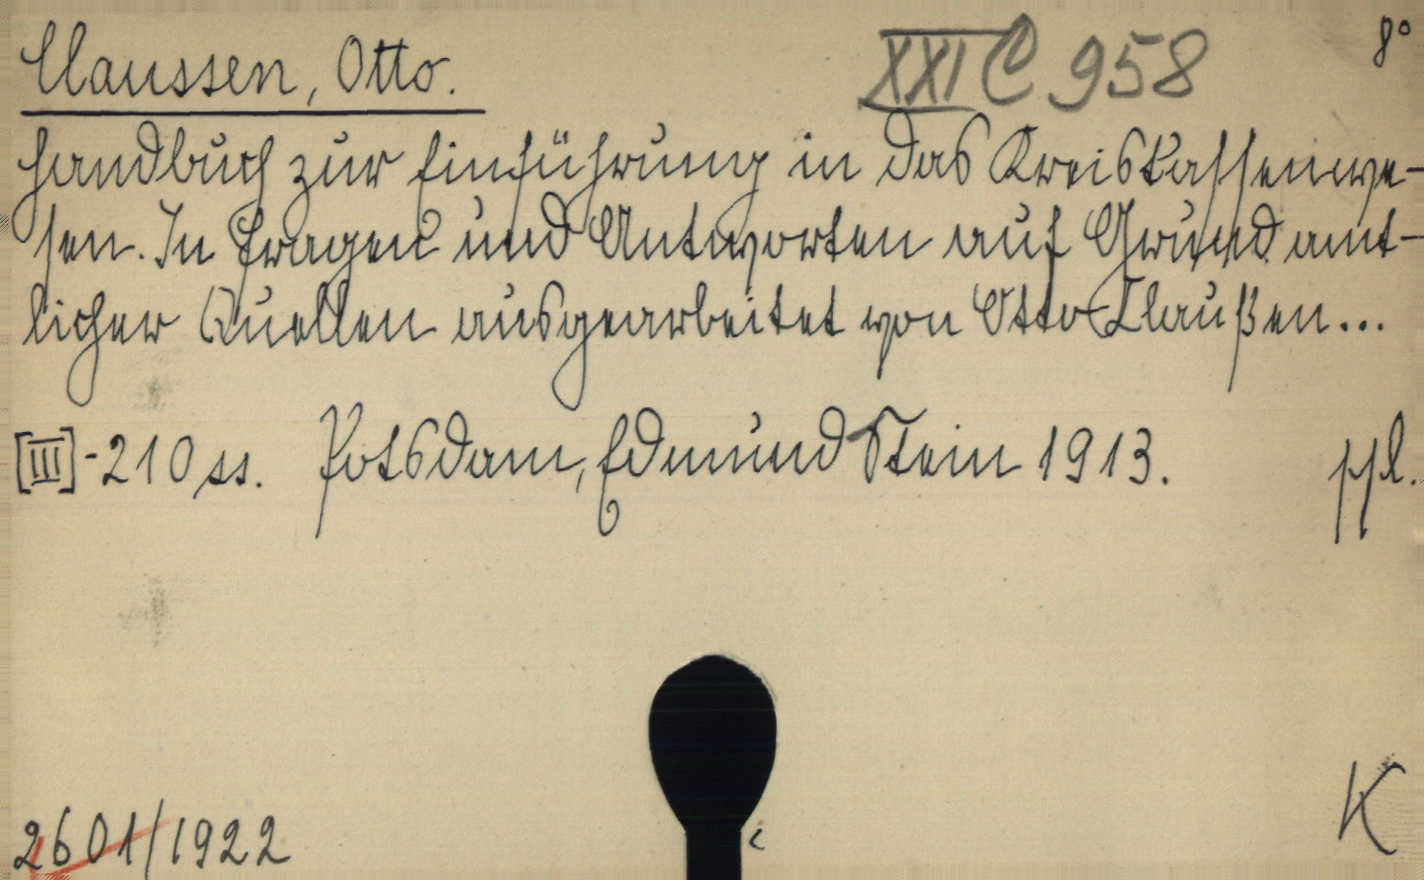 Claussen, Otto.
XXI C 958
8°
Handbuch zur Einführung in das Kreiskassenwe-
sen. In Fragen und Antworten auf Grund amt-
licher Quellen ausgearbeitet von Otto Claußen...
[III]-210 ss. Potsdam, Edmund Stein 1913.
ppl.
2601/1922
K